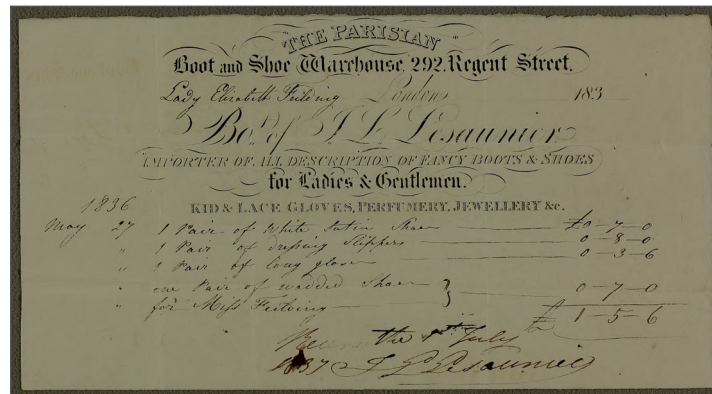 "THE PARISIAN"
Boot and Shoe Warehouse, 292, Regent Street.
Lady Elizabeth Feilding London 183
Bot. of J. L. Lesaunier
IMPORTER OF ALL DESCRIPTION OF FANCY BOOTS & SHOES
for Ladies & Gentlemen.
KID & LACE GLOVES, PERFUMERY, JEWELLERY &c.
1836
May 27 1 Pair of White Satin Shoes £0-7-0
" 1 Pair of dressing Slippers 0-8-0
" 1 Pair of long gloves 0-3-6
" one Pair of wadded Shoes } 0-7-0
" for Miss Feilding
£ 1-5-6
the July
1837 J L Lesaunier